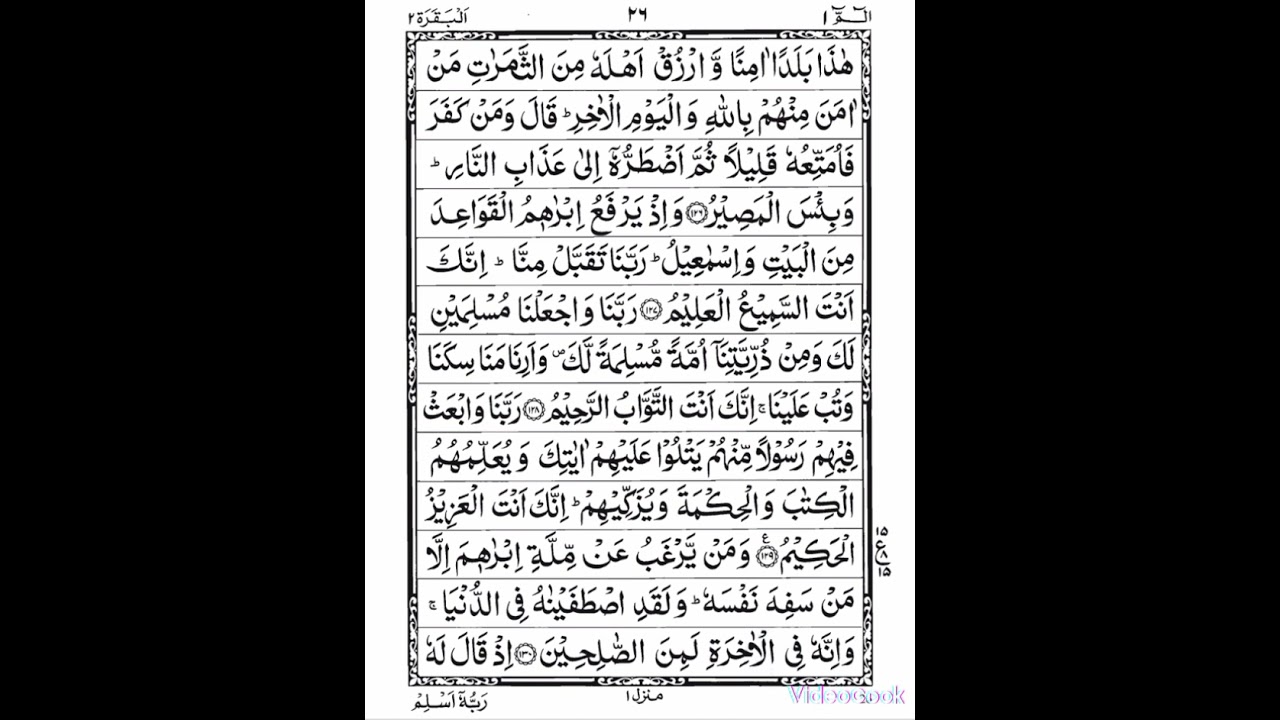 الٓمّٓ ١ ٢٦ اَلْبَقَرَة ٢
هٰذَا بَلَدًا اٰمِنًا وَّ ارْزُقْ اَهْلَهٗ مِنَ الثَّمَرٰتِ مَنْ
اٰمَنَ مِنْهُمْ بِاللّٰهِ وَ الْیَوْمِ الْاٰخِرِ ؕ قَالَ وَمَنْ كَفَرَ
فَاُمَتِّعُهٗ قَلِیْلًا ثُمَّ اَضْطَرُّهٗۤ اِلٰی عَذَابِ النَّارِ ؕ
وَ بِئْسَ الْمَصِیْرُ ﴿۱۲۶﴾ وَ اِذْ یَرْفَعُ اِبْرٰهٖمُ الْقَوَاعِدَ
مِنَ الْبَیْتِ وَ اِسْمٰعِیْلُ ؕ رَبَّنَا تَقَبَّلْ مِنَّا ؕ اِنَّكَ
اَنْتَ السَّمِیْعُ الْعَلِیْمُ ﴿۱۲۷﴾ رَبَّنَا وَ اجْعَلْنَا مُسْلِمَیْنِ
لَكَ وَ مِنْ ذُرِّیَّتِنَاۤ اُمَّةً مُّسْلِمَةً لَّكَ ۪ وَ اَرِنَا مَنَاسِكَنَا
وَ تُبْ عَلَیْنَا ۚ اِنَّكَ اَنْتَ التَّوَّابُ الرَّحِیْمُ ﴿۱۲۸﴾ رَبَّنَا وَ ابْعَثْ
فِیْهِمْ رَسُوْلًا مِّنْهُمْ یَتْلُوْا عَلَیْهِمْ اٰیٰتِكَ وَ یُعَلِّمُهُمُ
الْكِتٰبَ وَ الْحِكْمَةَ وَ یُزَكِّیْهِمْ ؕ اِنَّكَ اَنْتَ الْعَزِیْزُ
الْحَكِیْمُ ﴿۱۲۹﴾ وَ مَنْ یَّرْغَبُ عَنْ مِّلَّةِ اِبْرٰهٖمَ اِلَّا
مَنْ سَفِهَ نَفْسَهٗ ؕ وَ لَقَدِ اصْطَفَیْنٰهُ فِی الدُّنْیَا ۚ
وَ اِنَّهٗ فِی الْاٰخِرَةِ لَمِنَ الصّٰلِحِیْنَ ﴿۱۳۰﴾ اِذْ قَالَ لَهٗ
منزل ١ رَبُّهٗۤ اَسْلِمْ